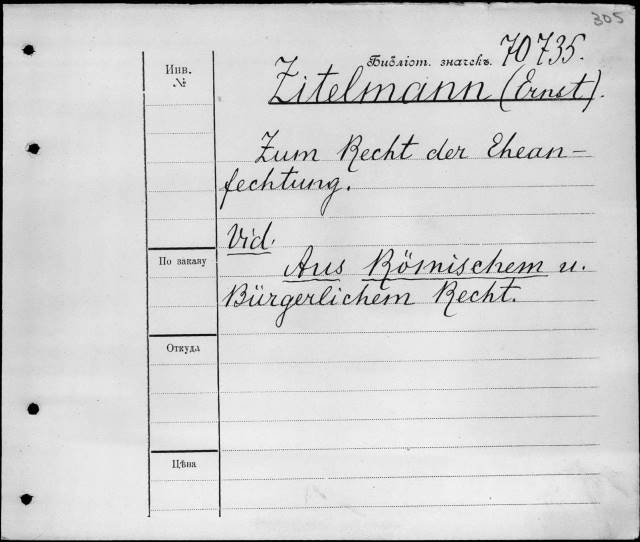 305
Библіот. значекъ 70735.
Инв.
№
Zitelmann (Ernst).
Zum Recht der Ehean-
fechtung.
Vid.
Aus Römischem u.
По заказу
Bürgerlichem Recht.
Откуда
Цѣна